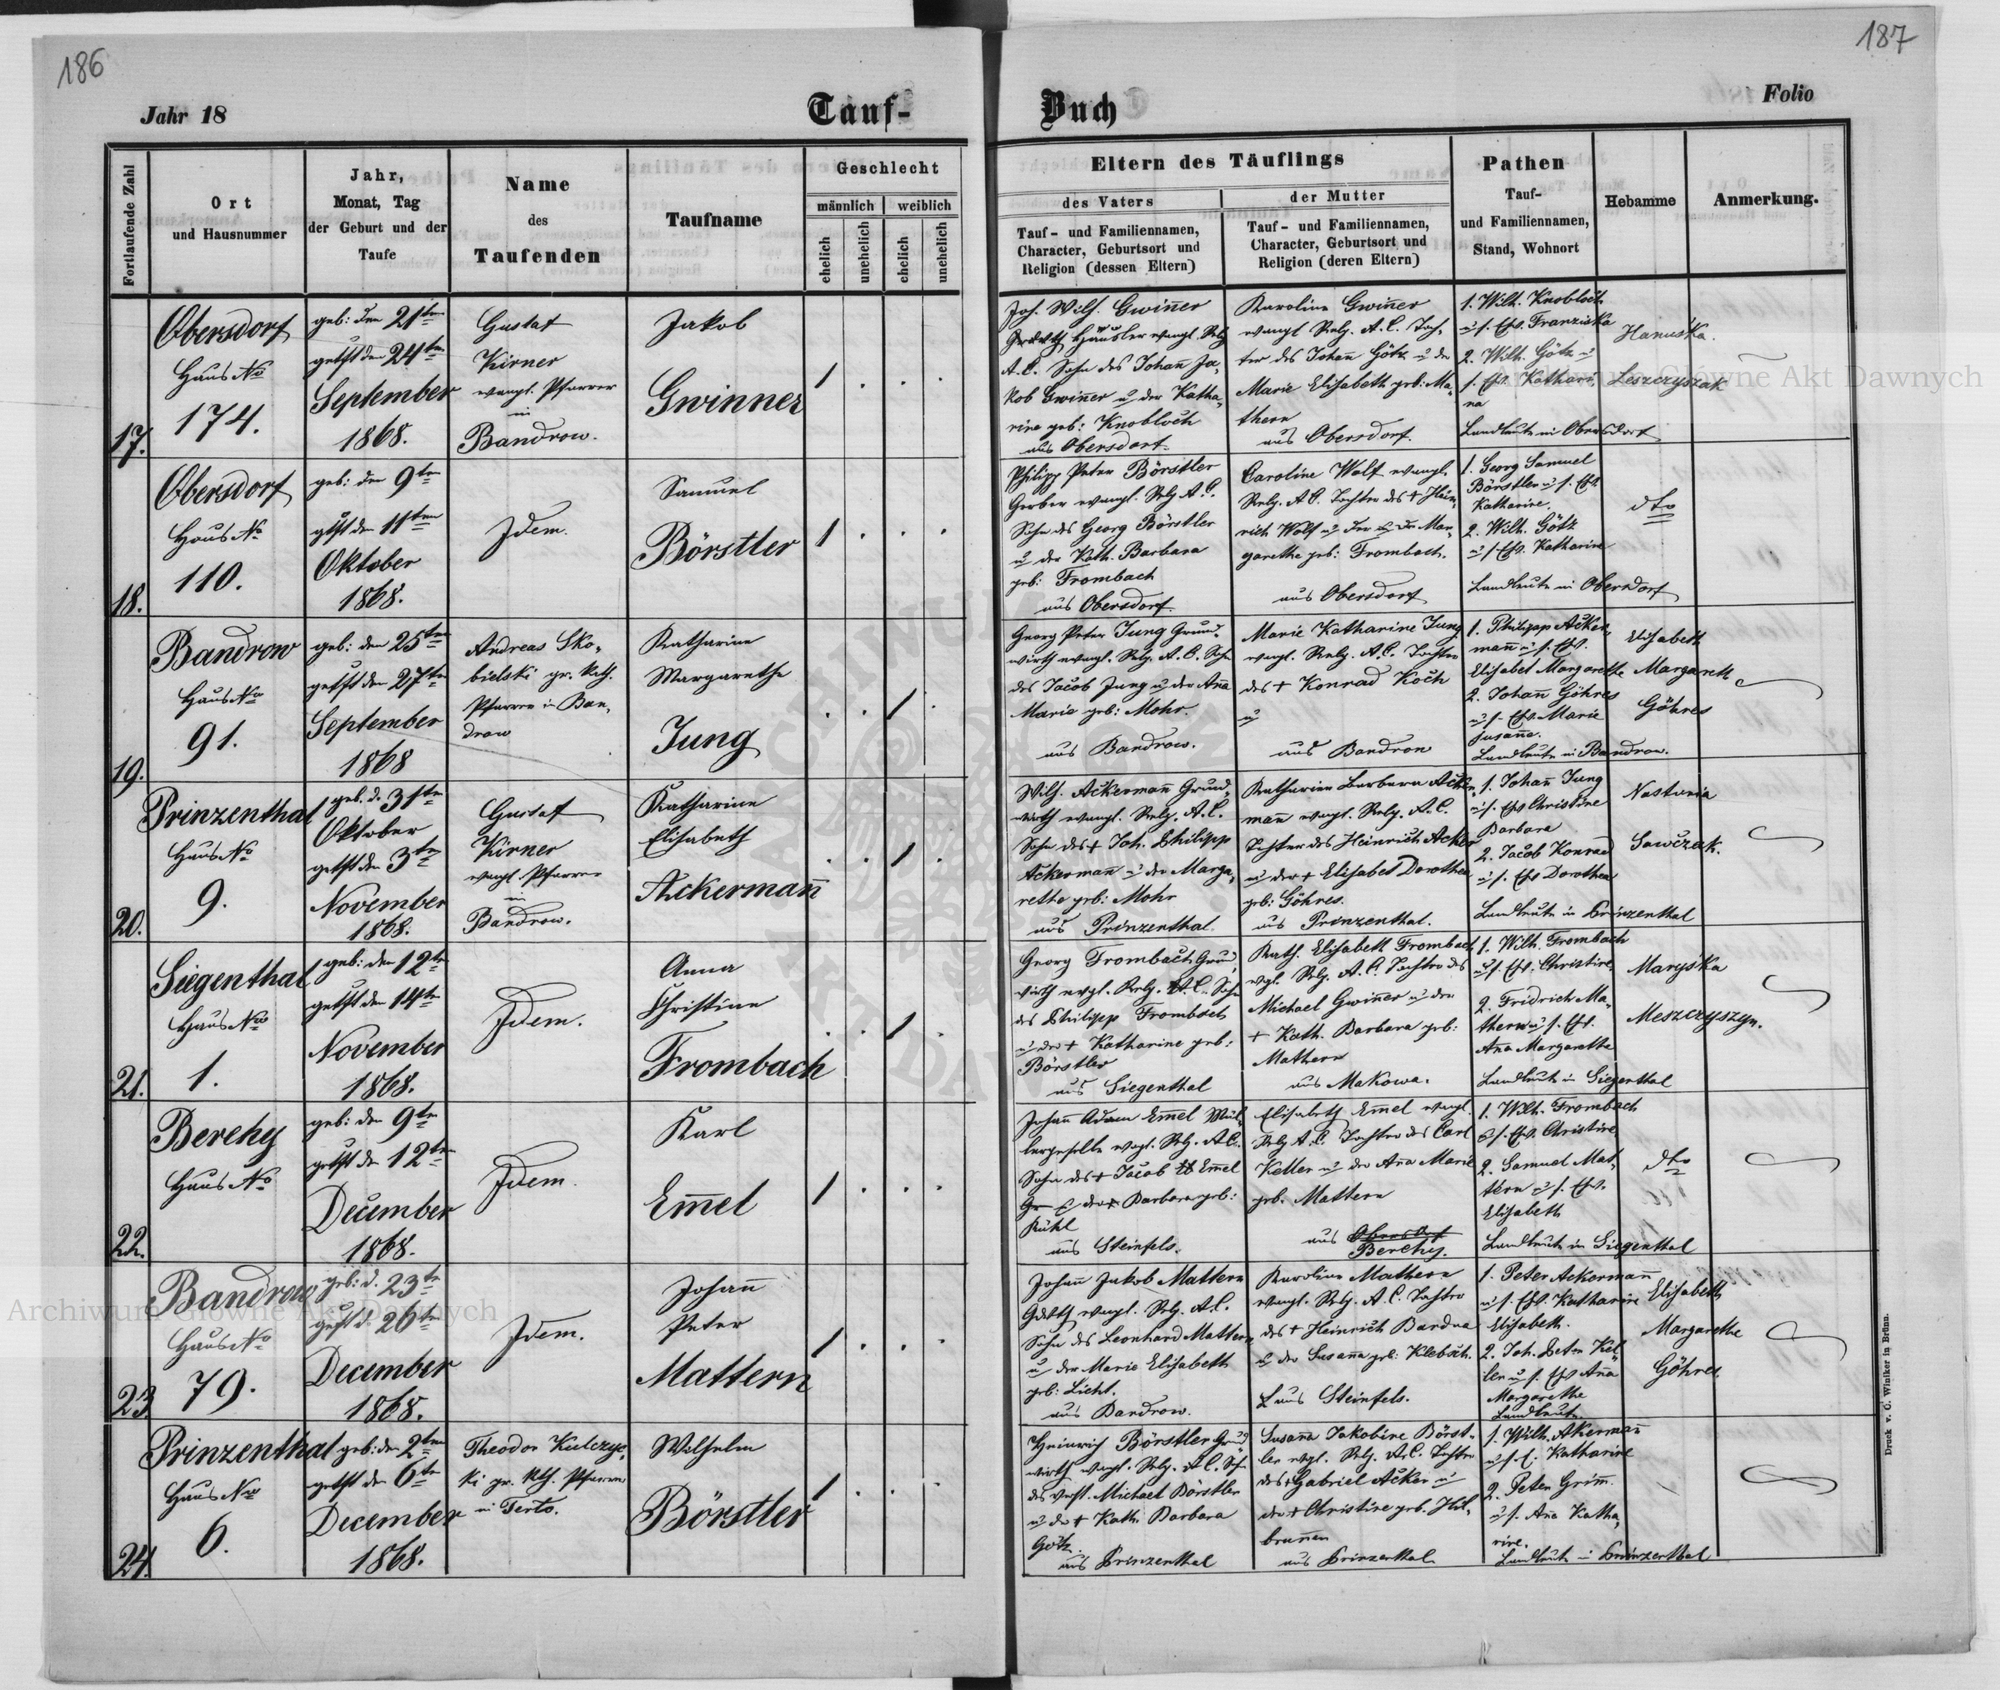 186
187
Jahr 18
Tauf-
Buch
Folio
Fortlaufende Zahl
Ort
und Hausnummer
Jahr,
Monat, Tag
der Geburt und der
Taufe
Name
des
Taufenden
Taufname
Geschlecht
männlich
weiblich
ehelich
unehelich
ehelich
unehelich
Eltern des Täuflings
des Vaters
der Mutter
Tauf- und Familiennamen,
Character, Geburtsort und
Religion (dessen Eltern)
Tauf- und Familiennamen,
Character, Geburtsort und
Religion (deren Eltern)
Pathen
Tauf-
und Familiennamen,
Stand, Wohnort
Hebamme
Anmerkung.
17.
Obersdorf
Haus No
174.
geb: den 21ten
getft den 24ten
September
1868.
Gustaf
Kirner
evangl. Pfarrer
in
Bandrow.
Jakob
Gwinner
1 . . .
Joh. Wilh. Gwiner
Häusler evangl. Relg
A.C. Sohn des Johañ Ja,
kob Gwiner u der Katha,
rine geb: Knobloch
aus Obersdorf.
Karoline Gwiner
evangl Relg. A.C. Toch,
ter des Johañ Götz u der
Marie Elisabeth geb: Ma,
thern
aus Obersdorf.
1. Wilh. Knobloch
u s. Ehw. Franziska
2. Wilh. Götz u
s. Ehw. Kathari,
na
Landleute in Obersdorf
Hanuska
Leszczyszak
18.
Obersdorf
Haus No
110.
geb: den 9ten
gtft den 11ten
Oktober
1868.
Idem.
Samuel
Börstler
1 . . .
Philipp Peter Börstler
Gerber evangl. Relg A.C.
Sohn des Georg Börstler
u der Kath. Barbara
geb: Frombach
aus Obersdorf.
Caroline Wolf evangl.
Relg. A.C. Tochter des + Hein,
rich Wolf u der Mar,
garethe geb: Frombach.
aus Obersdorf
1. Georg Samuel
Börstler u s. Ehw.
Katharine.
2. Wilh. Götz
u s. Ehw. Katharine
Landleute in Obersdorf
dto
19.
Bandrow
Haus No
91.
geb: den 25ten
getft den 27ten
September
1868
Andreas Sko,
bielski gr. kath.
Pfarrer in Ban,
drow
Katharine
Margarethe
Jung
. . 1 .
Georg Peter Jung Grund,
wirth evangl. Relg. A.C. Sohn
des Jacob Jung u der Aña
Marie geb: Mohr.
aus Bandrow.
Marie Katharine Jung
evangl. Relg. A.C. Tochter
des + Konrad Koch
u
aus Bandrow
1. Philipp Acker,
mañ u s. Ehw.
Elisabet Margarethe
2. Johañ Göhres
u s. Ehw. Marie
Susaña.
Landleute in Bandrow.
Elisabeth
Margareth
Göhres
20.
Prinzenthal
Haus No
9.
geb. d. 31ten
Oktober
getft den 3te
November
1868.
Gustaf
Kirner
evangl Pfarrer
in
Bandrow.
Katharine
Elisabeth
Ackermañ
. . 1 .
Wilh. Ackermañ Grund,
wirth evangl. Relg. A.C.
Sohn des + Joh. Philipp
Ackermañ u der Marga,
rethe geb: Mohr
aus Prinzenthal.
Katharine Barbara Acker,
mañ evangl. Relg. A.C.
Tochter des Heinrich Acker
u der + Elisabet Dorothea
geb: Göhres.
aus Prinzenthal.
1. Johañ Jung
u s. Ehw Christine
Barbara
2. Jacob Konrad
u s. Ehw Dorothea
Landleute in Prinzenthal
Nastunia
Sawczak.
21.
Siegenthal
Haus No
1.
geb: den 12te
getft den 14te
November
1868.
Idem.
Anna
Christine
Frombach
. . 1 .
Georg Frombach Grund,
wirth evgl. Relg. A.C. Sohn
des Philipp Frombach
u der + Katharine geb:
Börstler
aus Siegenthal
Kath. Elisabeth Frombach
evgl. Relg. A.C. Tochter des
Michael Gwiner u der
+ Kath. Barbara geb:
Mathern
aus Makowa.
1. Wilh. Frombach
u s. Ehw. Christine
2. Fridrich Ma,
thern u s. Ehw.
Aña Margarethe
Landleute in Siegenthal
Maryska
Meszczyszyn.
22.
Berehy
Haus No
geb: den 9te
getft den 12te
December
1868.
Idem.
Karl
Em̃el
1 . . .
Johañ Adam Em̃el Mül,
lergeselle evgl. Relg. A.C.
Sohn des + Jacob Em̃el
der + Barbara geb:
Kühl
aus Steinfels.
Elisabeth Em̃el evgl.
Relg A.C. Tochter des Carl
Keller u der Aña Marie
geb. Mattern
aus Obersdorf
Berehy.
1. Wilh. Frombach
u s. Ehw. Christine
2. Samuel Mat,
tern u s. Ehw.
Elisabeth
Landleute in Siegenthal
dto
23.
Bandrow
Haus No
79.
geb: d. 23te
getft d. 26te
December
1868.
Idem.
Johañ
Peter
Mattern
1 . . .
Johañ Jakob Mattern
evangl. Relg. A.C.
Sohn des Leonhard Mattern
u der Marie Elisabeth
geb: Licht.
aus Bandrow.
Karoline Mathern
evangl. Relg. A.C. Tochter
des + Heinrich Bardua
u der Susaña geb: Klebsch.
aus Steinfels.
1. Peter Ackermañ
u s. Ehw. Katharine
Elisabeth.
2. Joh. Peter Kel,
ler u s. Ehw Aña
Margarethe
Landleute
Elisabeth
Margarethe
Göhres.
24.
Prinzenthal
Haus No
6.
geb: den 2ten
getft den 6te
December
1868.
Theodor Kulczyc,
ki gr. kth. Pfarrer
in Terło.
Wilhelm
Börstler
1 . . .
Heinrich Börstler Grund
wirth evangl. Relg. A.C. Sohn
des Michael Börstler
u der + Kath. Barbara
Götz.
aus Prinzenthal
Susaña Jakobine Börst,
ler evgl. Relg. A.C. Tochter
des + Gabriel Acker u
der + Christine geb. Heil,
brunnen
aus Prinzenthal
1. Wilh. Akermañ
u s. E. Katharine
2. Peter Grim̃.
u s. Aña Katha,
rine.
Landleute in Prinzenthal
Druck v. C. Winiker in Brünn.
Archiwum Główne Akt Dawnych
Archiwum Główne Akt Dawnych